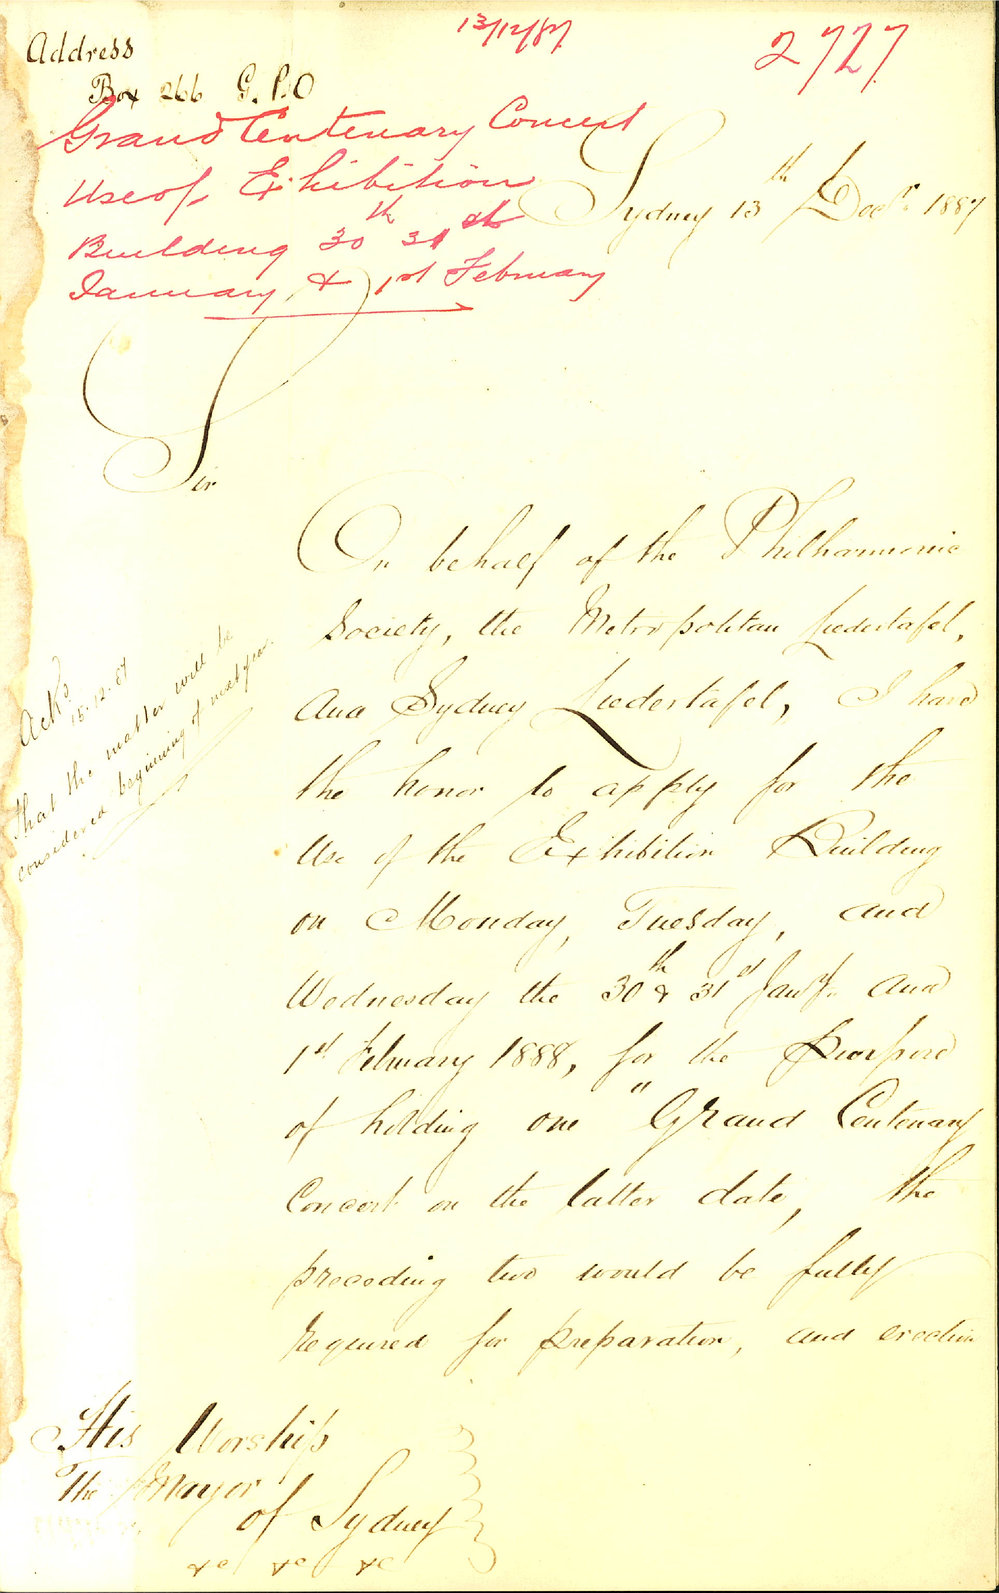 13/12/87
2727
Address
Box 266 G.P.O
Grand Centenary Concert
Use of Exhibition
Building 30th 31st
January & 1st February
Sydney 13th Decr. 1887
Sir
On behalf of the Philharmonic
Society, the Metropolitan Liedertafel,
and Sydney Liedertafel, I have
the honor to apply for the
Use of the Exhibition Building
on Monday, Tuesday, and
Wednesday the 30th & 31st Jany. and
1st February 1888, for the purpose
of holding one "Grand Centenary
Concert on the latter date, the
preceding two would be fully
required for preparation, and erection
Ackd
15.12.87
that the matter will be
considered beginning of next year.
His Worship
The Mayor
of Sydney
&c &c &c